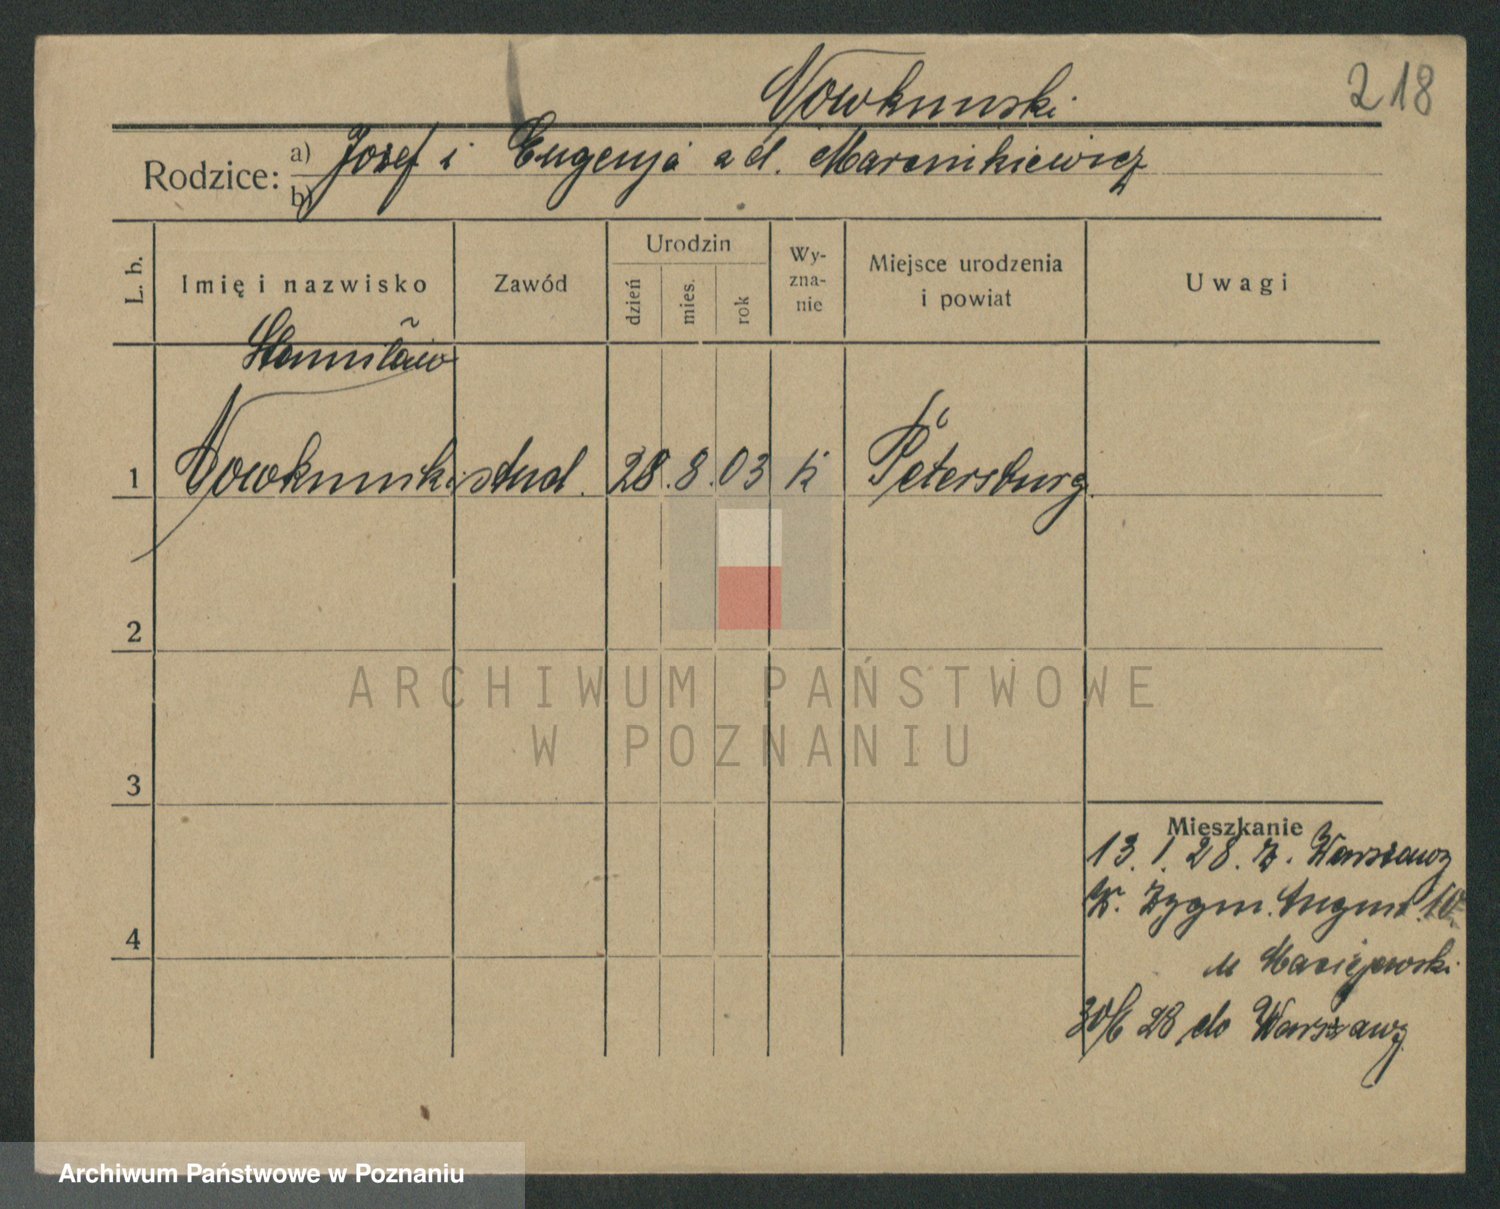 218
Nowkunski
Rodzice: a) Josef i Eugenja z d. Marcinkiewicz
b)
L. b.
Imię i nazwisko
Zawód
Urodzin
dzień
mies.
rok
Wy-
zna-
nie
Miejsce urodzenia
i powiat
Uwagi
Stanisław
1 Nowkunski stud. 28. 8. 03 k Petersburg
2
3
4
ARCHIWUM PAŃSTWOWE
W POZNANIU
Mieszkanie
13. 1. 28. z. Warszawy
W. Zygm. August. 10
u Maciejewski
30/6 28 do Warszawy
Archiwum Państwowe w Poznaniu